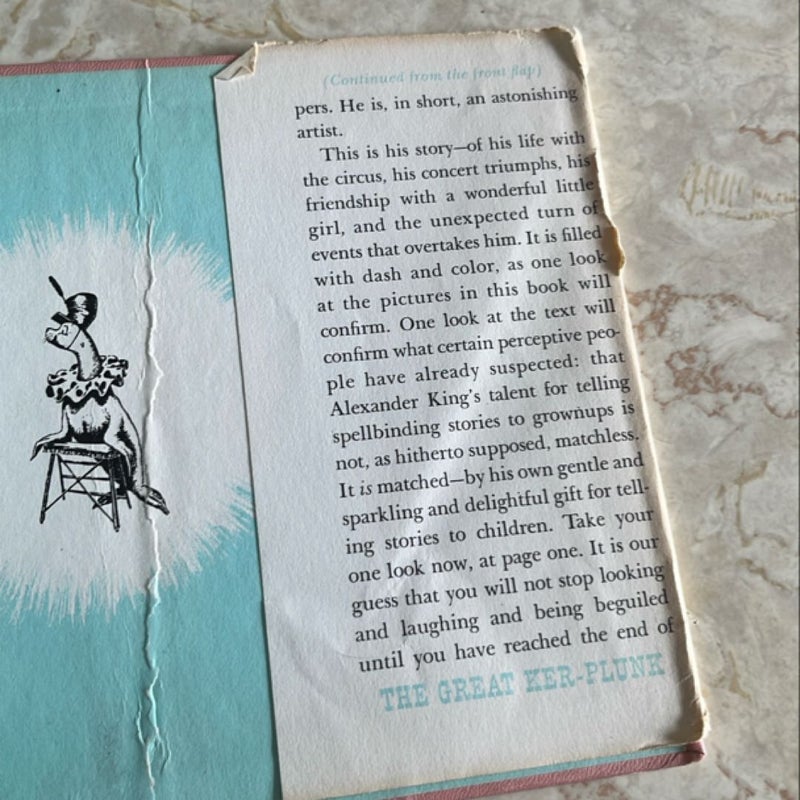 (Continued from the front flap)
pers. He is, in short, an astonishing
artist.
This is his story—of his life with
the circus, his concert triumphs, his
friendship with a wonderful little
girl, and the unexpected turn of
events that overtakes him. It is filled
with dash and color, as one look
at the pictures in this book will
confirm. One look at the text will
confirm what certain perceptive peo-
ple have already suspected: that
Alexander King's talent for telling
spellbinding stories to grownups is
not, as hitherto supposed, matchless.
It is matched—by his own gentle and
sparkling and delightful gift for tell-
ing stories to children. Take your
one look now, at page one. It is our
guess that you will not stop looking
and laughing and being beguiled
until you have reached the end of
THE GREAT KER-PLUNK